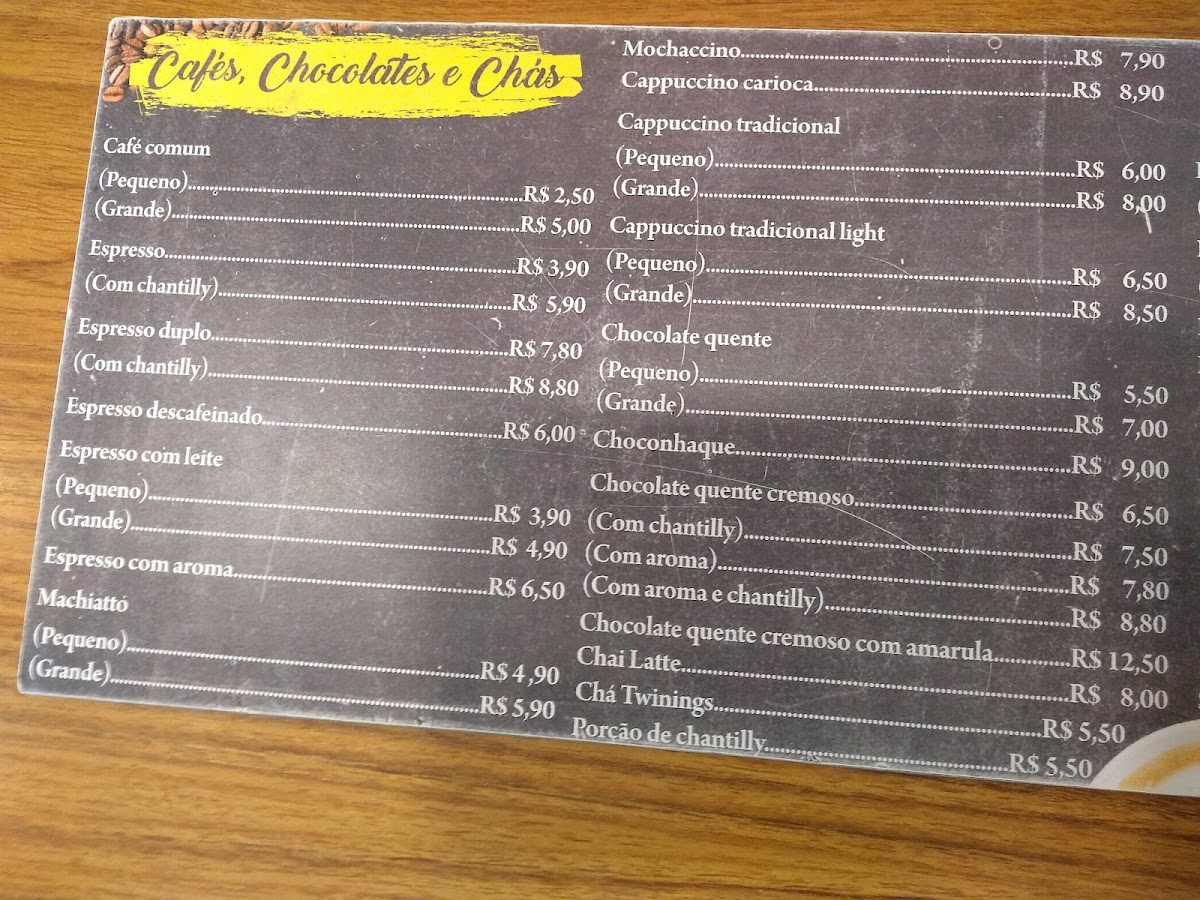 Cafés, Chocolates e Chás
Café comum
(Pequeno)..........R$ 2,50
(Grande)..........R$ 5,00
Espresso..........R$ 3,90
(Com chantilly)..........R$ 5,90
Espresso duplo..........R$ 7,80
(Com chantilly)..........R$ 8,80
Espresso descafeinado..........R$ 6,00
Espresso com leite
(Pequeno)..........R$ 3,90
(Grande)..........R$ 4,90
Espresso com aroma..........R$ 6,50
Machiatto
(Pequeno)..........R$ 4,90
(Grande)..........R$ 5,90
Mochaccino..........R$ 7,90
Cappuccino carioca..........R$ 8,90
Cappuccino tradicional
(Pequeno)..........R$ 6,00
(Grande)..........R$ 8,00
Cappuccino tradicional light
(Pequeno)..........R$ 6,50
(Grande)..........R$ 8,50
Chocolate quente
(Pequeno)..........R$ 5,50
(Grande)..........R$ 7,00
Choconhaque..........R$ 9,00
Chocolate quente cremoso..........R$ 6,50
(Com chantilly)..........R$ 7,50
(Com aroma)..........R$ 7,80
(Com aroma e chantilly)..........R$ 8,80
Chocolate quente cremoso com amarula..........R$ 12,50
Chai Latte..........R$ 8,00
Chá Twinings..........R$ 5,50
Porção de chantilly..........R$ 5,50